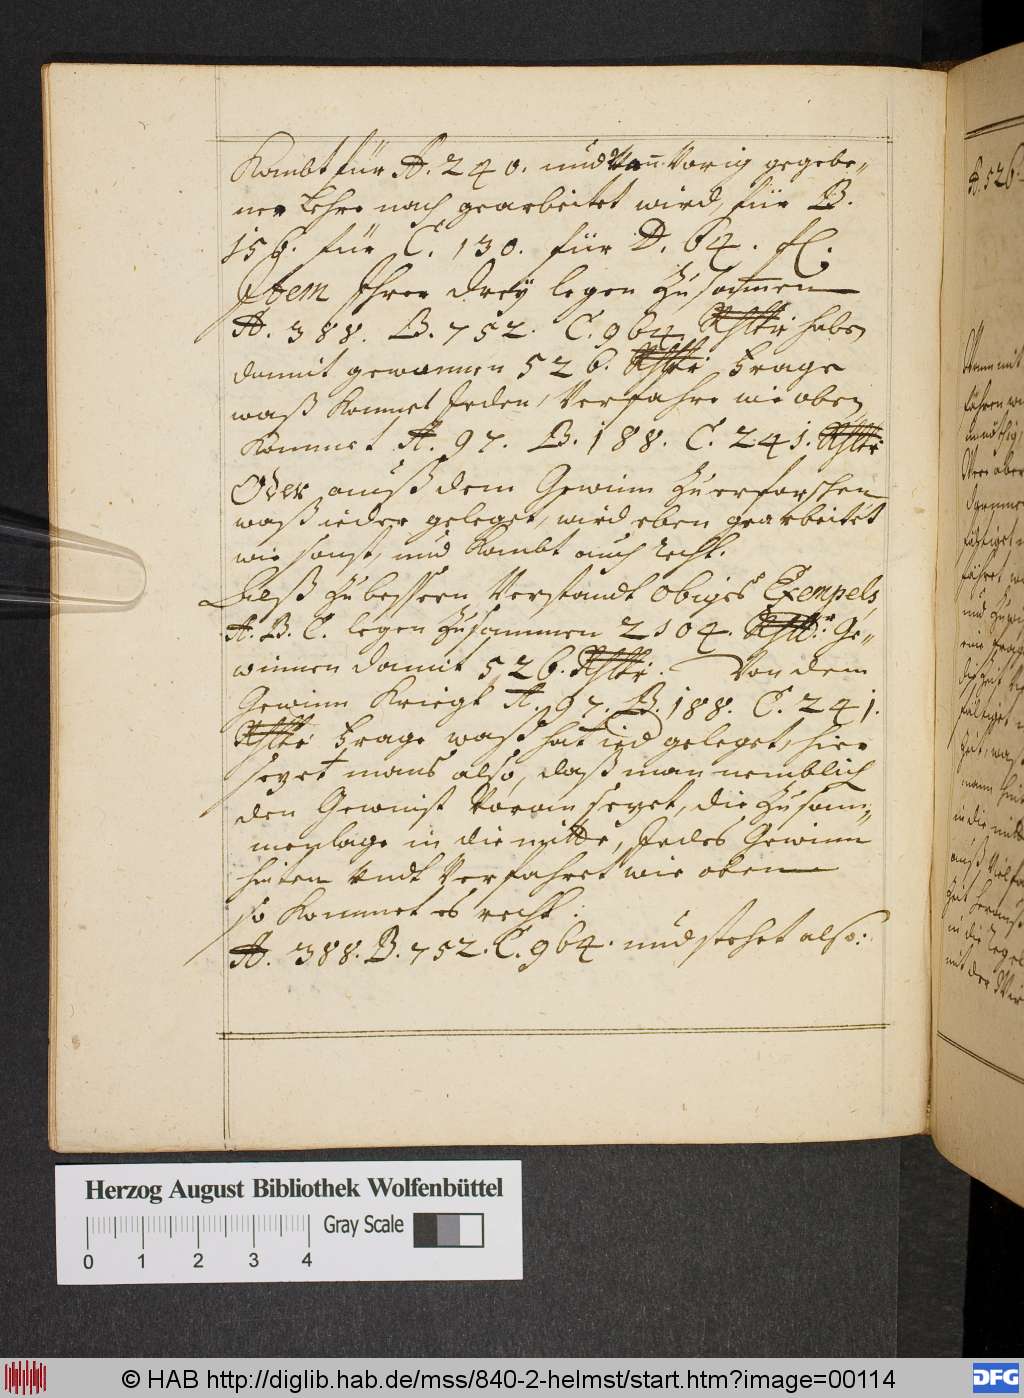 Kombt für A. 240. und Wan Vorig gegebe„
ner Lehre nach gearbeitet wird, für B.
156. für C. 130. für D. 64. fl.
Item Ihrer drey legen Zusammen
A. 388. B. 752. C. 964. Rthlr: haben
damit gewonnen 526. Rthlr: Frage
waß kommet Jeden, Verfahre wie oben,
kommet A. 97. B. 188. C. 241. Rthlr:
Oder auß dem Gewinn Zu erforschen
waß ieder geleget, wird eben gearbeitet
wie sonst, und kombt auch recht.
Zu besseren Verstandt obiges Exempels
A. B. C. legen Zusammen 2104. Rthlr: Ge„
winnen damit 526. Rthlr: Von dem
Gewinn Kriegt A. 97. B. 188. C. 241.
Rthlr: Frage waß hat ied geleget, hier
setzet mans also, daß man nemblich
den Gewinst Voran setzet, die Zusam„
menlage in die mitte, Jedes Gewinn
hinten Undt Verfahret wie oben
so kommet es recht:
A. 388. B. 752. C. 964. und stehet also:
A. 526
Herzog August Bibliothek Wolfenbüttel
Gray Scale
0 1 2 3 4
© HAB http://diglib.hab.de/mss/840-2-helmst/start.htm?image=00114
DFG